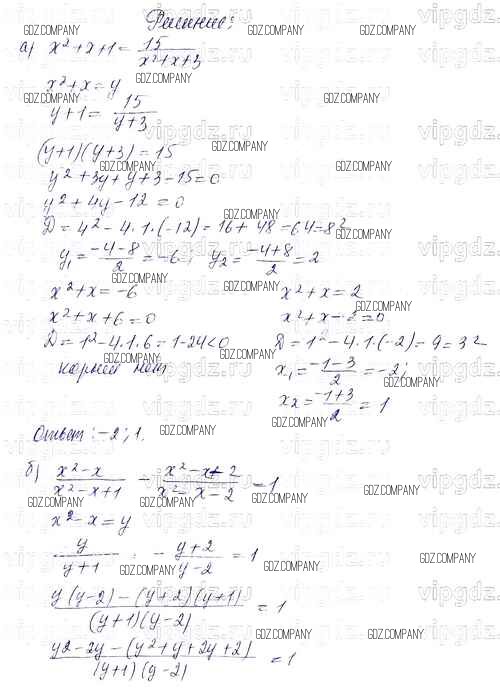 Решение:
а) x² + x + 1 = 15/(x² + x + 3)
x² + x = y
y + 1 = 15/(y + 3)
(y+1)(y+3) = 15
y² + 3y + y + 3 - 15 = 0
y² + 4y - 12 = 0
D = 4² - 4·1·(-12) = 16 + 48 = 64 = 8²
y₁ = (-4-8)/2 = -6; y₂ = (-4+8)/2 = 2
x² + x = -6
x² + x + 6 = 0
D = 1² - 4·1·6 = 1 - 24 < 0
корней нет
x² + x = 2
x² + x - 2 = 0
D = 1² - 4·1·(-2) = 9 = 3²
x₁ = (-1-3)/2 = -2;
x₂ = (-1+3)/2 = 1
Ответ: -2; 1.
б) (x² - x)/(x² - x + 1) - (x² - x + 2)/(x² - x - 2) = 1
x² - x = y
y/(y+1) - (y+2)/(y-2) = 1
(y(y-2) - (y+2)(y+1))/((y+1)(y-2)) = 1
(y² - 2y - (y² + y + 2y + 2))/((y+1)(y-2)) = 1
vipgdz.ru
GDZ.COMPANY